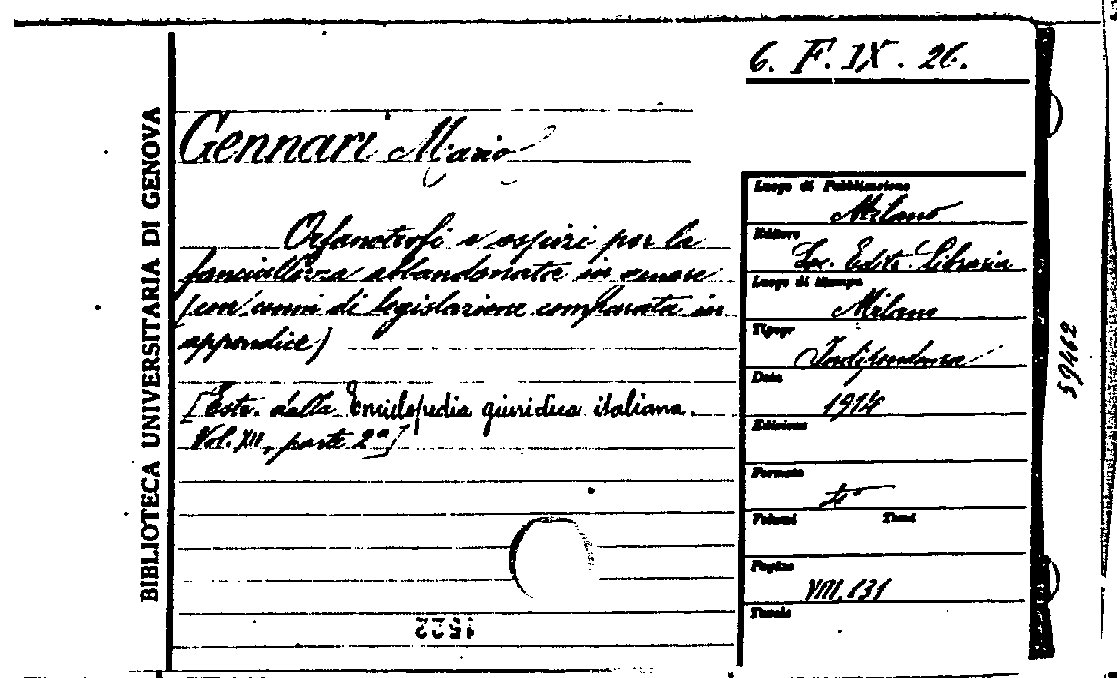 6. F. IX. 26.
BIBLIOTECA UNIVERSITARIA DI GENOVA
Gennari Mario
Orfanotrofi e ospizi per la
fanciullezza abbandonata in genere
(con cenni di legislazione comparata in
appendice)
[Estr. dalla Enciclopedia giuridica italiana.
Vol. XII, parte 2ª]
1522
Luogo di Pubblicazione
Milano
Editore
Soc. Editr. Libraria
Luogo di Stampa
Milano
Tipogr
Indipendenza
Data
1914
Edizione
Formato
4°
Volumi Tomi
Pagine
VIII, 131
Tavole
59462